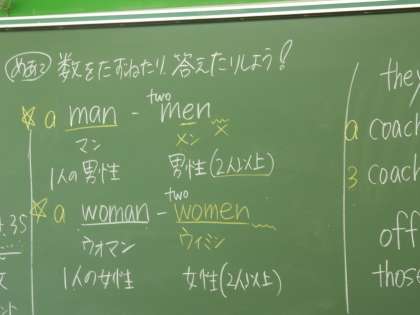 めあて 数をたずねたり、答えたりしよう!
two
☆ a man - men
マン メン ×
1人の男性 男性(2人以上)
two
☆ a woman - women
ウォマン ウィミン
1人の女性 女性(2人以上)
they
a coach
3 coach
off
those